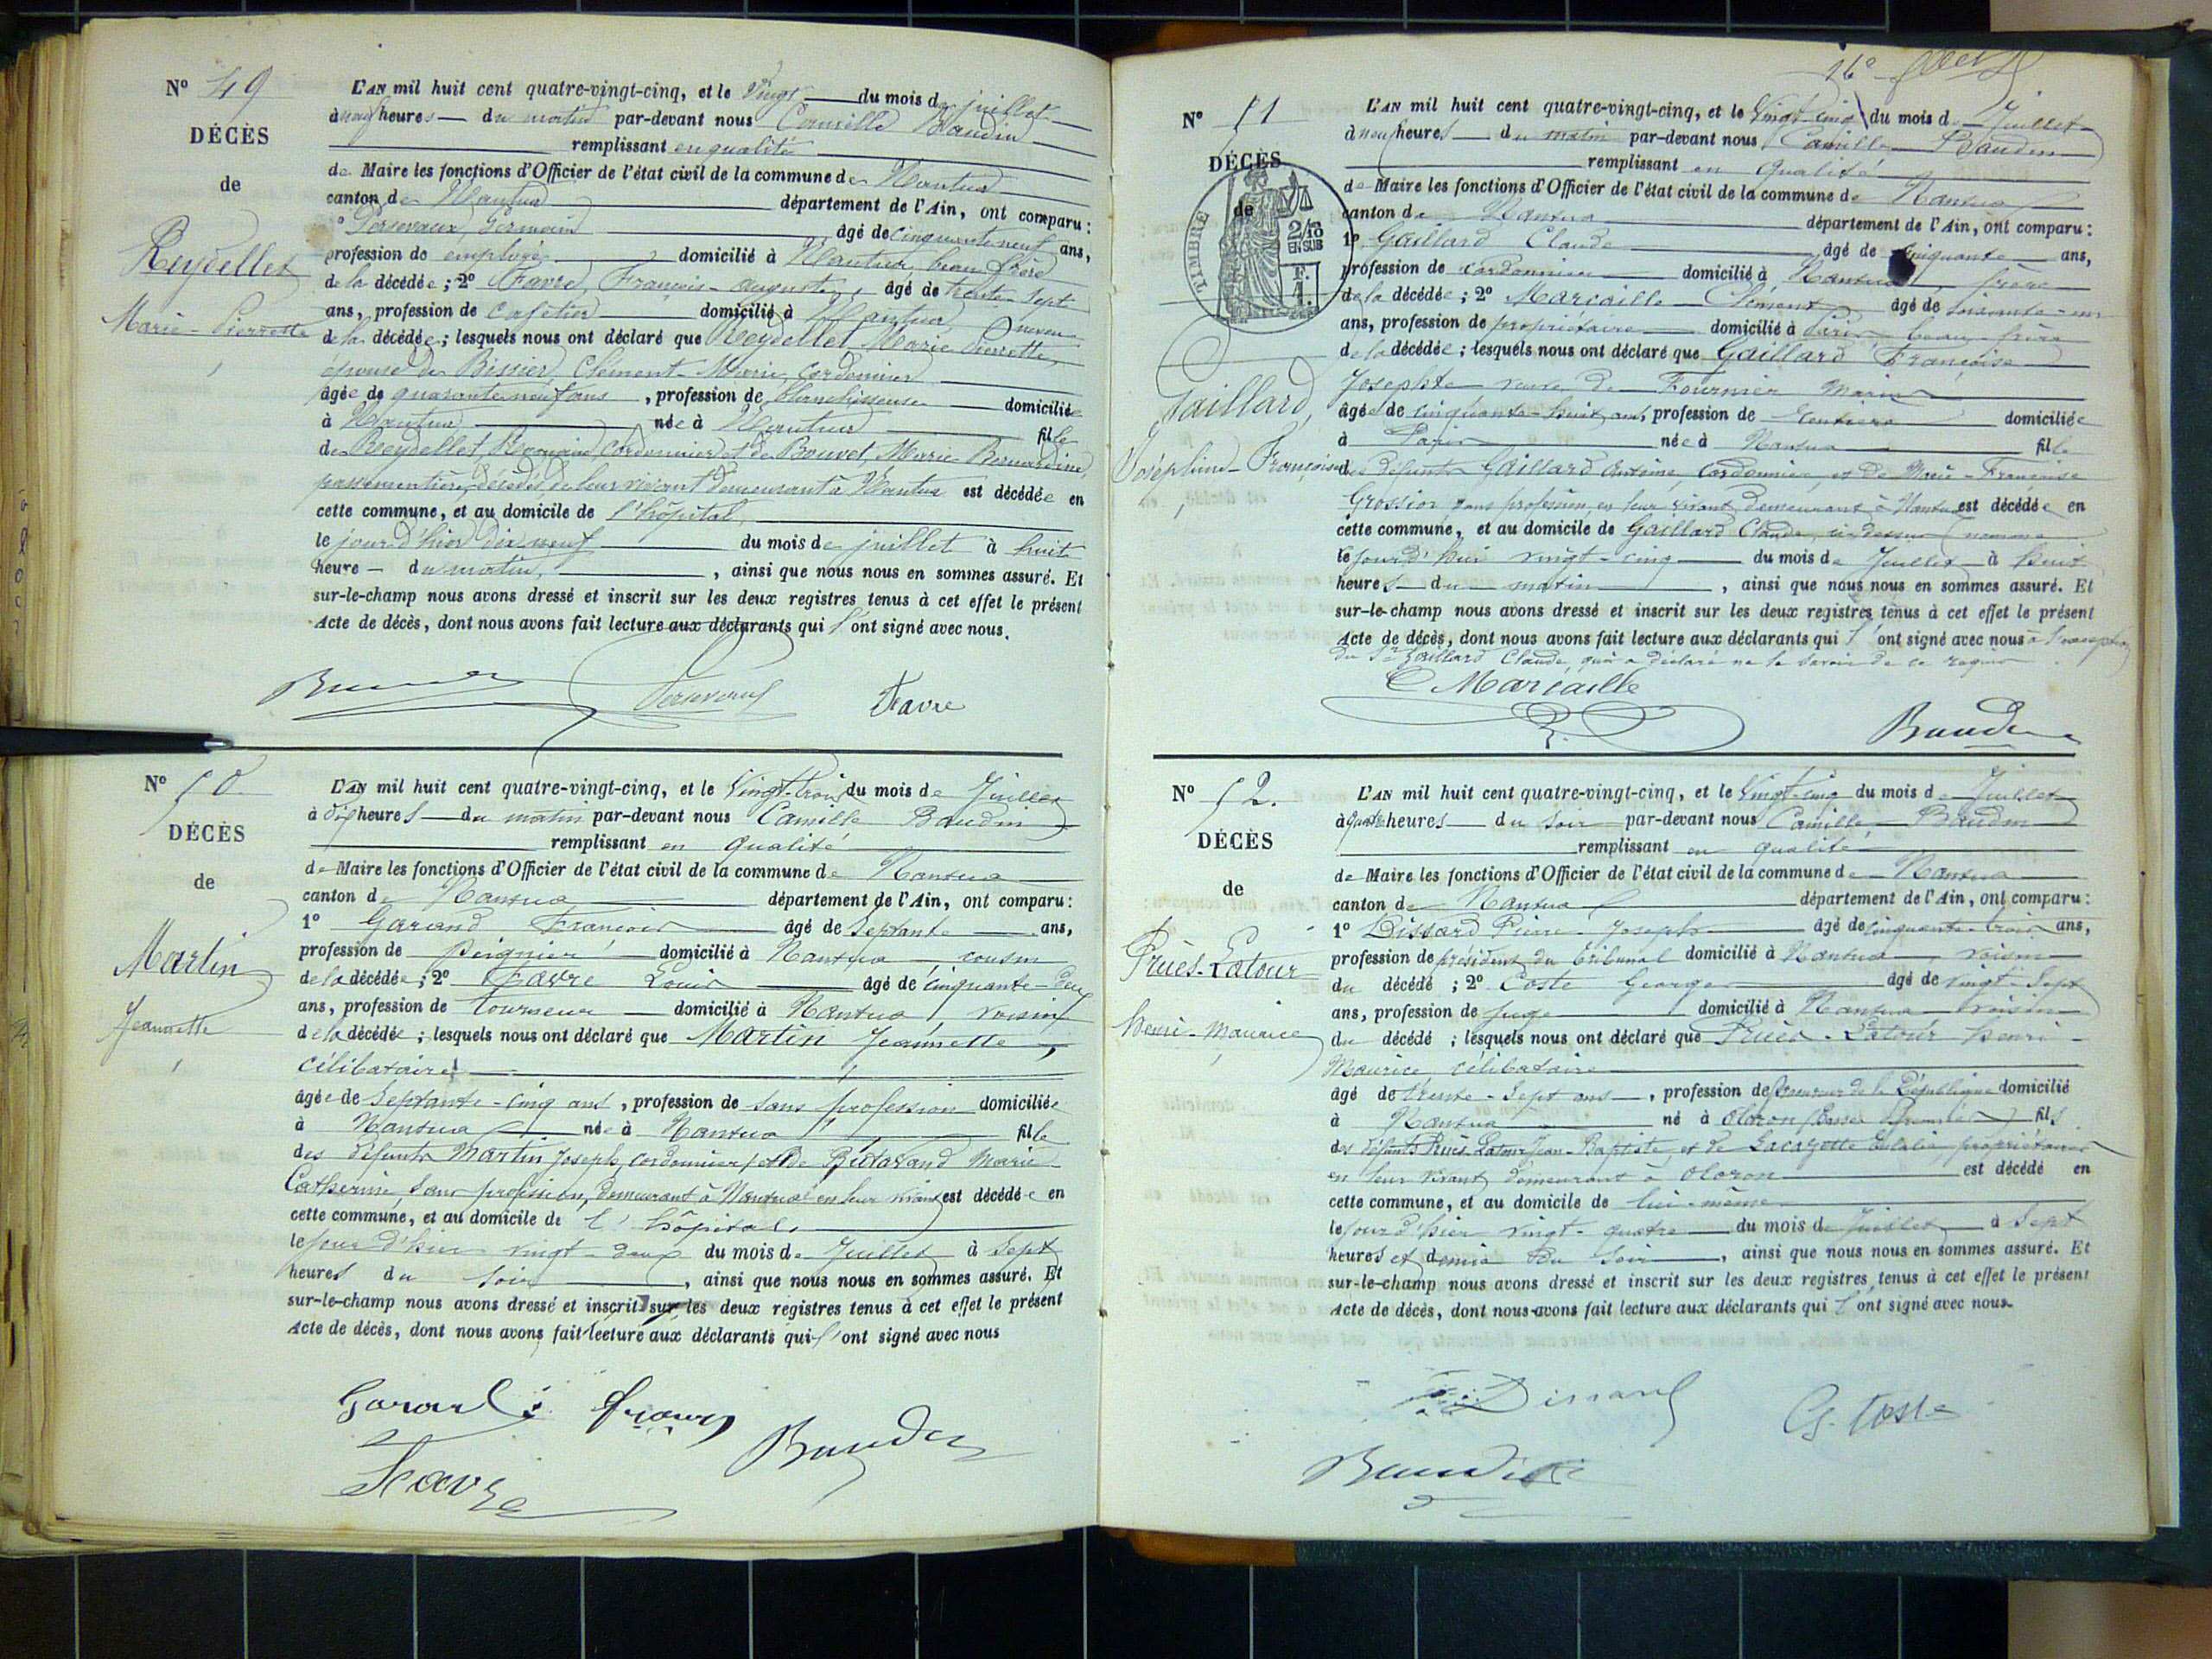 Nº 49
DÉCÈS
de
Reydellet
Marie-Pierrette
L'AN mil huit cent quatre-vingt-cinq, et le Vingt du mois de juillet
à neuf heures du matin par-devant nous Camille Baudin
remplissant en qualité
de Maire les fonctions d'Officier de l'état civil de la commune de Nantua
canton de Nantua département de l'Ain, ont comparu :
1º Germain âgé de cinquante neuf ans,
profession de employé domicilié à Nantua, beau frère
de la décédée ; 2º Favre, François-auguste, âgé de trente-sept
ans, profession de cafetier domicilié à Nantua, neveu
de la décédée ; lesquels nous ont déclaré que Reydellet Marie Pierrette,
épouse de Bissier Clément-Marie, Cordonnier
âgée de quarante neuf ans, profession de blanchisseuse domiciliée
à Nantua née à Nantua fille
de Reydellet, Cordonnier et de Bouvet, Marie Bernardine,
passementière, décédés, de leur vivant demeurant à Nantua est décédée en
cette commune, et au domicile de l'hôpital,
le jour d'hier dix neuf du mois de juillet à huit
heure du matin, ainsi que nous nous en sommes assuré. Et
sur-le-champ nous avons dressé et inscrit sur les deux registres tenus à cet effet le présent
Acte de décès, dont nous avons fait lecture aux déclarants qui l'ont signé avec nous.
Favre
Nº 50
DÉCÈS
de
Martin
Jeannette
L'AN mil huit cent quatre-vingt-cinq, et le Vingt-trois du mois de Juillet
à dix heures du matin par-devant nous Camille Baudin
remplissant en qualité
de Maire les fonctions d'Officier de l'état civil de la commune de Nantua
canton de Nantua département de l'Ain, ont comparu :
1º Garand François âgé de Septante ans,
profession de Peignier domicilié à Nantua cousin
de la décédée ; 2º Favre Louis âgé de cinquante-deux
ans, profession de tourneur domicilié à Nantua, voisin
de la décédée ; lesquels nous ont déclaré que Martin Jeannette,
célibataire
âgée de Septante-cinq ans, profession de sans profession domiciliée
à Nantua née à Nantua fille
des défunts Martin Joseph, cordonnier, et de Marie
Catherine, sans profession, demeurant à Nantua en leur vivant est décédée en
cette commune, et au domicile de l'hôpital,
le jour d'hier vingt-deux du mois de Juillet à Sept
heures du soir, ainsi que nous nous en sommes assuré. Et
sur-le-champ nous avons dressé et inscrit sur les deux registres tenus à cet effet le présent
Acte de décès, dont nous avons fait lecture aux déclarants qui l'ont signé avec nous
Garand françois
Baudin
Favre
26e
Nº 51
DÉCÈS
de
TIMBRE
2/10
EN SUS
F.
1.
Gaillard,
Joséphine-Françoise
L'AN mil huit cent quatre-vingt-cinq, et le Vingt-cinq du mois de Juillet
à neuf heures du matin par-devant nous Camille Baudin
remplissant en qualité
de Maire les fonctions d'Officier de l'état civil de la commune de Nantua
canton de Nantua département de l'Ain, ont comparu :
1º Gaillard Claude âgé de Cinquante ans,
profession de cordonnier domicilié à Nantua frère
de la décédée ; 2º Marcaille Clément âgé de soixante-un
ans, profession de propriétaire domicilié à Paris beau-frère
de la décédée ; lesquels nous ont déclaré que Gaillard Françoise
Josephte veuve de Fournier Marie
âgée de cinquante-huit ans, profession de Rentière domiciliée
à Paris née à Nantua fille
des défunts Gaillard Antoine, Cordonnier, et de Marie-Françoise
Grossion sans profession, en leur vivant demeurant à Nantua est décédée en
cette commune, et au domicile de Gaillard Claude, ci-dessus nommé
le jour d'hui vingt-cinq du mois de Juillet à huit
heures du matin, ainsi que nous nous en sommes assuré. Et
sur-le-champ nous avons dressé et inscrit sur les deux registres tenus à cet effet le présent
Acte de décès, dont nous avons fait lecture aux déclarants qui l'ont signé avec nous à l'exception
du Sr Gaillard Claude, qui a déclaré ne le savoir de ce requis
C Marcaille
Baudin
Nº 52.
DÉCÈS
de
Priès-Latour
henri-Maurice
L'AN mil huit cent quatre-vingt-cinq, et le Vingt-cinq du mois de Juillet
à quatre heures du soir par-devant nous Camille Baudin
remplissant en qualité
de Maire les fonctions d'Officier de l'état civil de la commune de Nantua
canton de Nantua département de l'Ain, ont comparu :
1º Dissard Pierre-Joseph âgé de cinquante-trois ans,
profession de président du tribunal domicilié à Nantua, voisin
du décédé ; 2º Coste Georges âgé de vingt-sept
ans, profession de juge domicilié à Nantua voisin
du décédé ; lesquels nous ont déclaré que Priès-Latour henri-
Maurice, célibataire
âgé de trente-sept ans, profession de Procureur de la République domicilié
à Nantua né à Oloron (Basses Pyrénées) fils
des défunts Priès-Latour Jean-Baptiste, et de Lacazette Eulalie, propriétaires
en leur vivant demeurant à Oloron est décédé en
cette commune, et au domicile de lui-même
le jour d'hier vingt-quatre du mois de Juillet à Sept
heures et demie du soir, ainsi que nous nous en sommes assuré. Et
sur-le-champ nous avons dressé et inscrit sur les deux registres tenus à cet effet le présent
Acte de décès, dont nous avons fait lecture aux déclarants qui l'ont signé avec nous.
Dissard
G. Coste
Baudin